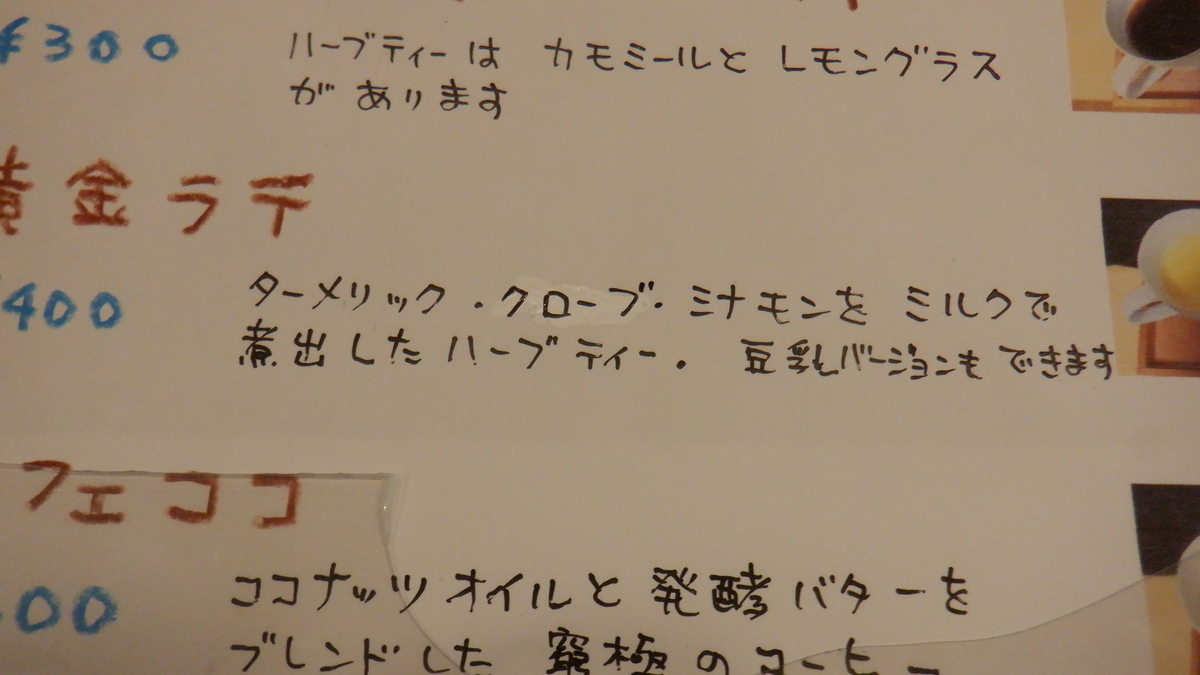 ¥300
ハーブティーは カモミールと レモングラス
があります
黄金ラテ
¥400
ターメリック・クローブ・ミナモンを ミルクで
煮出したハーブティー. 豆乳バージョンもできます
フェココ
00
ココナッツオイルと発酵バターを
ブレンドした 究極のコーヒー